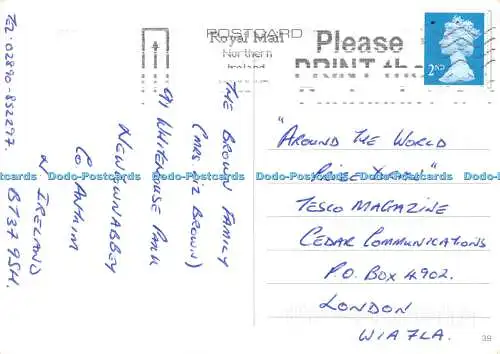 POSTCARD
Royal Mail
Northern
Ireland
Please
PRINT the
2ND
TEL. 02890-852297.
THE BROWN FAMILY
(MRS LIZ BROWN)
91 WHITEHOUSE PARK
NEWTOWNABBEY
CO ANTRIM
N IRELAND
BT37 9SH.
"AROUND THE WORLD
PRIZE DRAW"
TESCO MAGAZINE
CEDAR COMMUNICATIONS
P.O. BOX 4902.
LONDON
W1A 7LA.
Dodo-Postcards Dodo-Postcards Dodo-Postcards Dodo-Postcards Dodo-Postcards
Dodo-Postcards Dodo-Postcards Dodo-Postcards Dodo-Postcards Dodo-Postcards
39